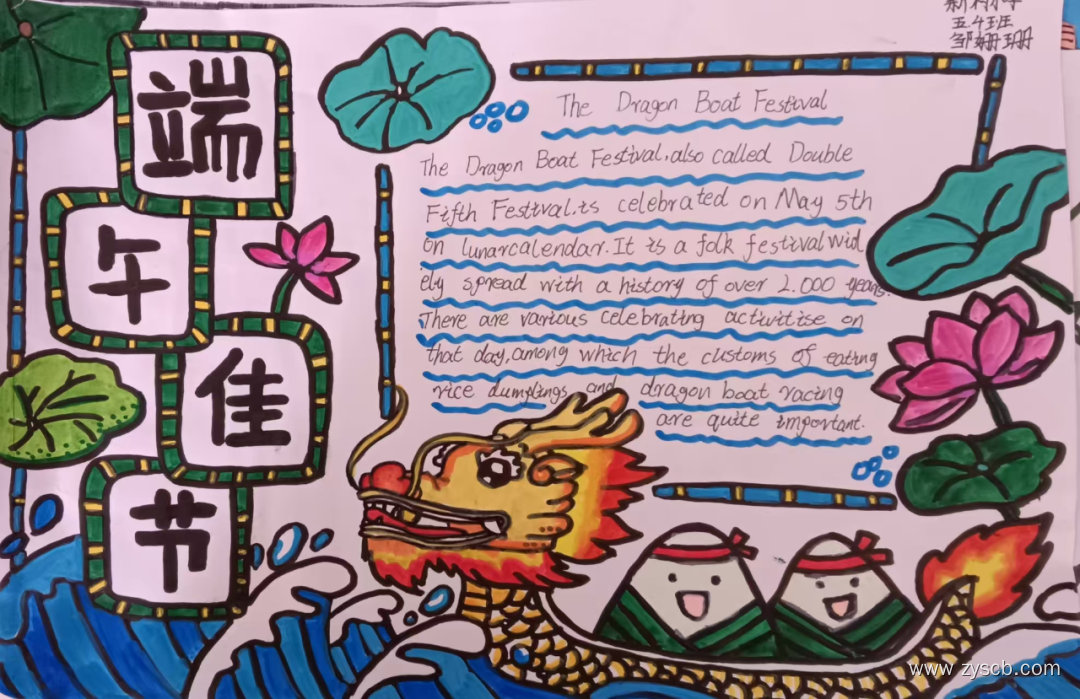 五4班
邹姗珊
端
午
佳
节
The Dragon Boat Festival
The Dragon Boat Festival,also called Double
Fifth Festival.is celebrated on May 5th
on lunarcalendar.It is a folk festival wid
ely spread with a history of over 2.000 years.
There are various celebrating activitise on
that day,among which the customs of eating
rice dumplings and dragon boat racing
are quite important.
www.zyscb.com